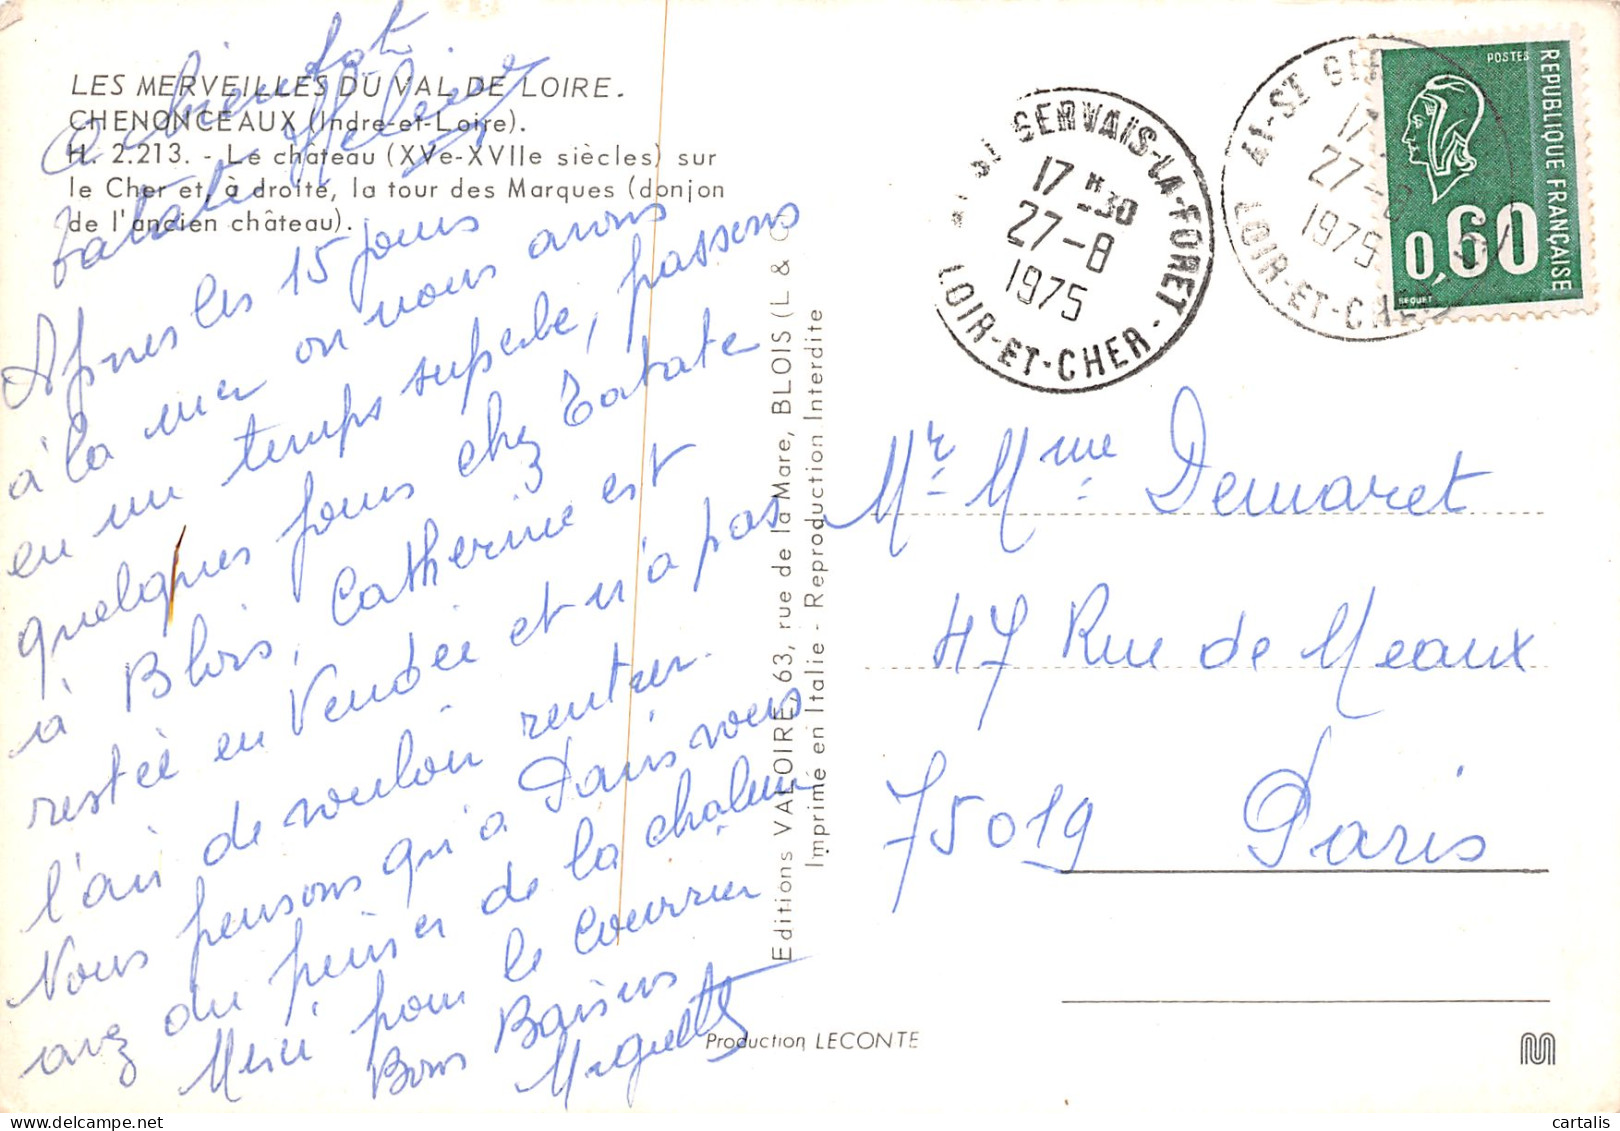 A bientot
Tatate Helene
LES MERVEILLES DU VAL DE LOIRE.
CHENONCEAUX (Indre-et-Loire).
H. 2.213. - Le château (XVe-XVIIe siècles) sur
le Cher et, à droite, la tour des Marques (donjon
de l'ancien château).
Apres les 15 jours
à la mer on nous avons
eu un temps superbe, passons
quelques jours chez Tatate
à Blois, Catherine est
restée en Vendée et n'a pas
l'air de vouloir rentrer.
Nous pensons qu'a Paris vous
avez du peiner de la chaleur
Merci pour le Courrier
Bons Baisers
Huguette
Editions VALOIRE, 63, rue de la Mare, BLOIS (L & C)
Imprimé en Italie - Reproduction Interdite
Production LECONTE
41-ST GERVAIS-LA-FORET - LOIR-ET-CHER
17 H 30
27-8
1975
41-ST GER
17
27-8
1975
LOIR-ET-CHER
POSTES
REPUBLIQUE FRANÇAISE
0,60
BEQUET
Mr Mme Demaret
47 Rue de Meaux
75019 Paris